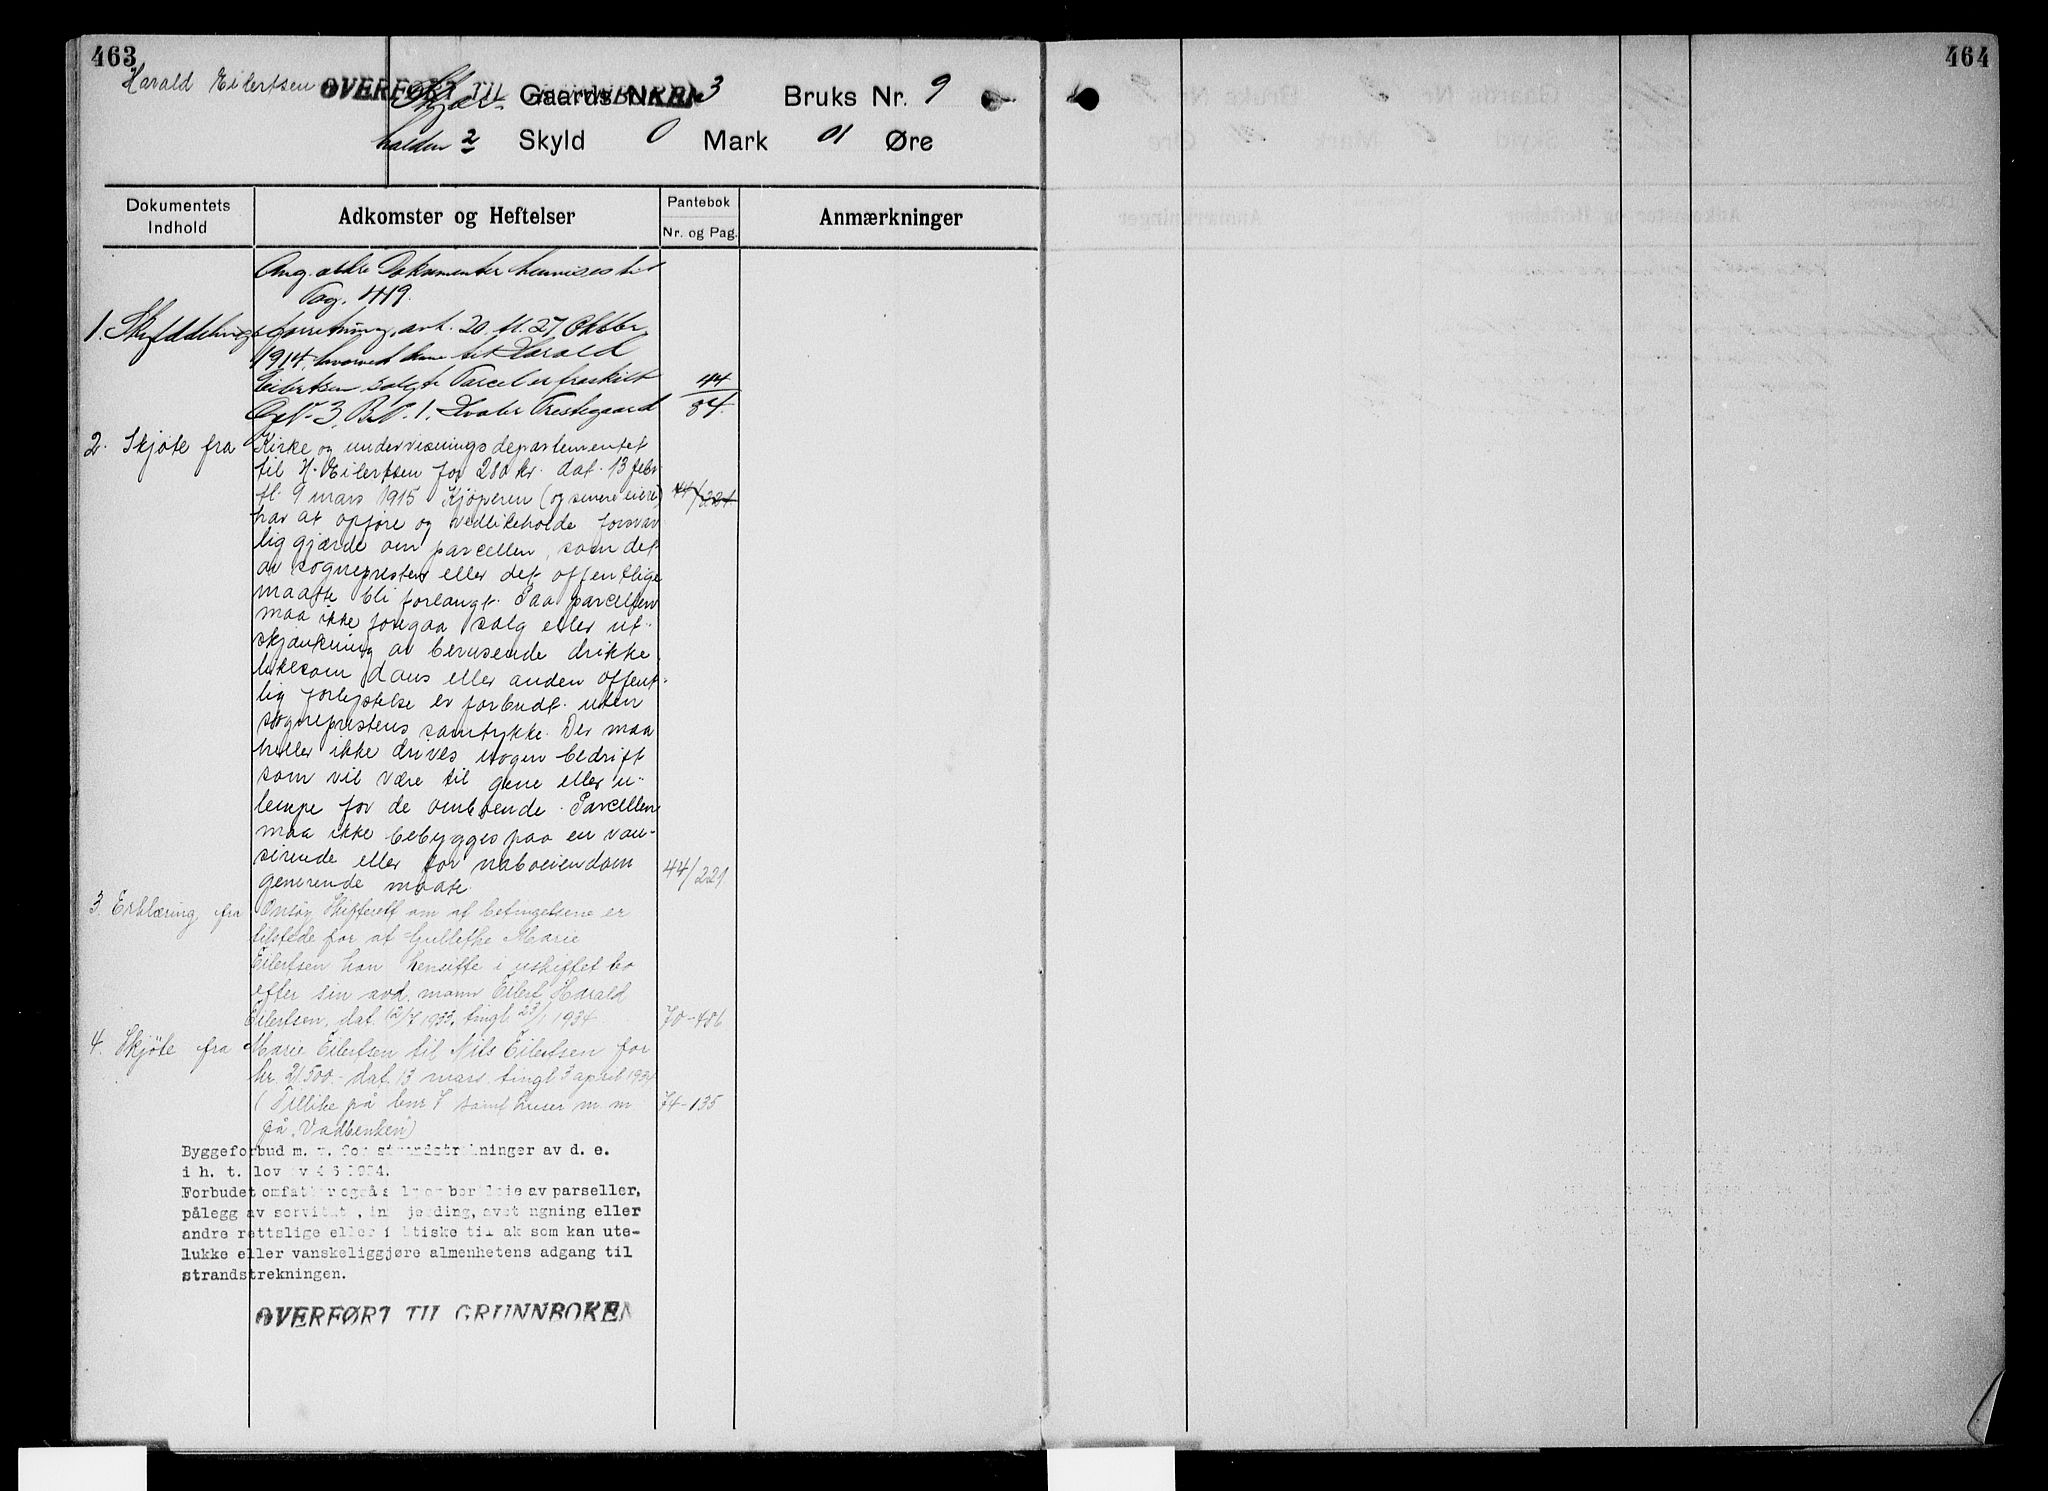 463
464
Harald Eilertsen
OVERFØRT TIL GRUNNBOKEN
Gaards Nr. 3 Bruks Nr. 9
halden 2 Skyld 0 Mark 01 Øre
Dokumentets Indhold
Adkomster og Heftelser
Pantebok
Nr. og Pag.
Anmærkninger
Ang. ældre Dokumenter henvises til
Pag. 419.
1. Skylddelingsforretning, avh. 20. tl. 27 Oktbr.
1914, hvorved den til Harald
Eilertsen solgte Parcel er fraskilt
Gr. No 3, Br. No. 1. Hvaler Prestegaard
44/84.
2. Skjøte fra Kirke og undervisningsdepartementet
til H. Eilertsen for 280 kr. dat. 13 febr
tl. 9 mars 1915 Kjøperen (og senere eiere) 44/221
har at opføre og vedlikeholde forsvar
lig gjærde om parcellen, som det
av sognepresten eller det offentlige
maatte bli forlangt. Paa parcellen
maa ikke foregaa salg eller ut-
skjænkning av berusende drikke
likesom dans eller anden offent-
lig forlystelse er forbudt uten
sogneprestens samtykke. Der maa
heller ikke drives nogen bedrift
som vil være til gene eller u-
lempe for de omboende. Parcellen
maa ikke bebygges paa en van-
sirende eller for naboeiendom
generende maate. 44/221
3. Erklæring fra Onsøy Skifterett om at betingelsene er
tilstede for at Gullethe Marie
Eilertsen kan hensitte i uskiftet bo
efter sin avd. mann Eilert Harald
Eilertsen, dat. 12/7 1933, tingl 23/1 1934. 70-486
4. Skjøte fra Marie Eilertsen til Nils Eilertsen for
kr. 21.500.- dat. 13 mars tingl 3 april 1934
(Tillike på bnr 7 samt huser m. m 74-135
på "Vadbenken")
Byggeforbud m. v. for strandstrekninger av d. e.
i h. t. lov v 4 6 1954.
Forbudet omfatter også salg or bortleie av parseller,
pålegg av servitut, inngjerding, avstengning eller
andre rettslige eller faktiske tiltak som kan ute-
lukke eller vanskeliggjøre almenhetens adgang til
strandstrekningen.
OVERFØRT TIL GRUNNBOKEN